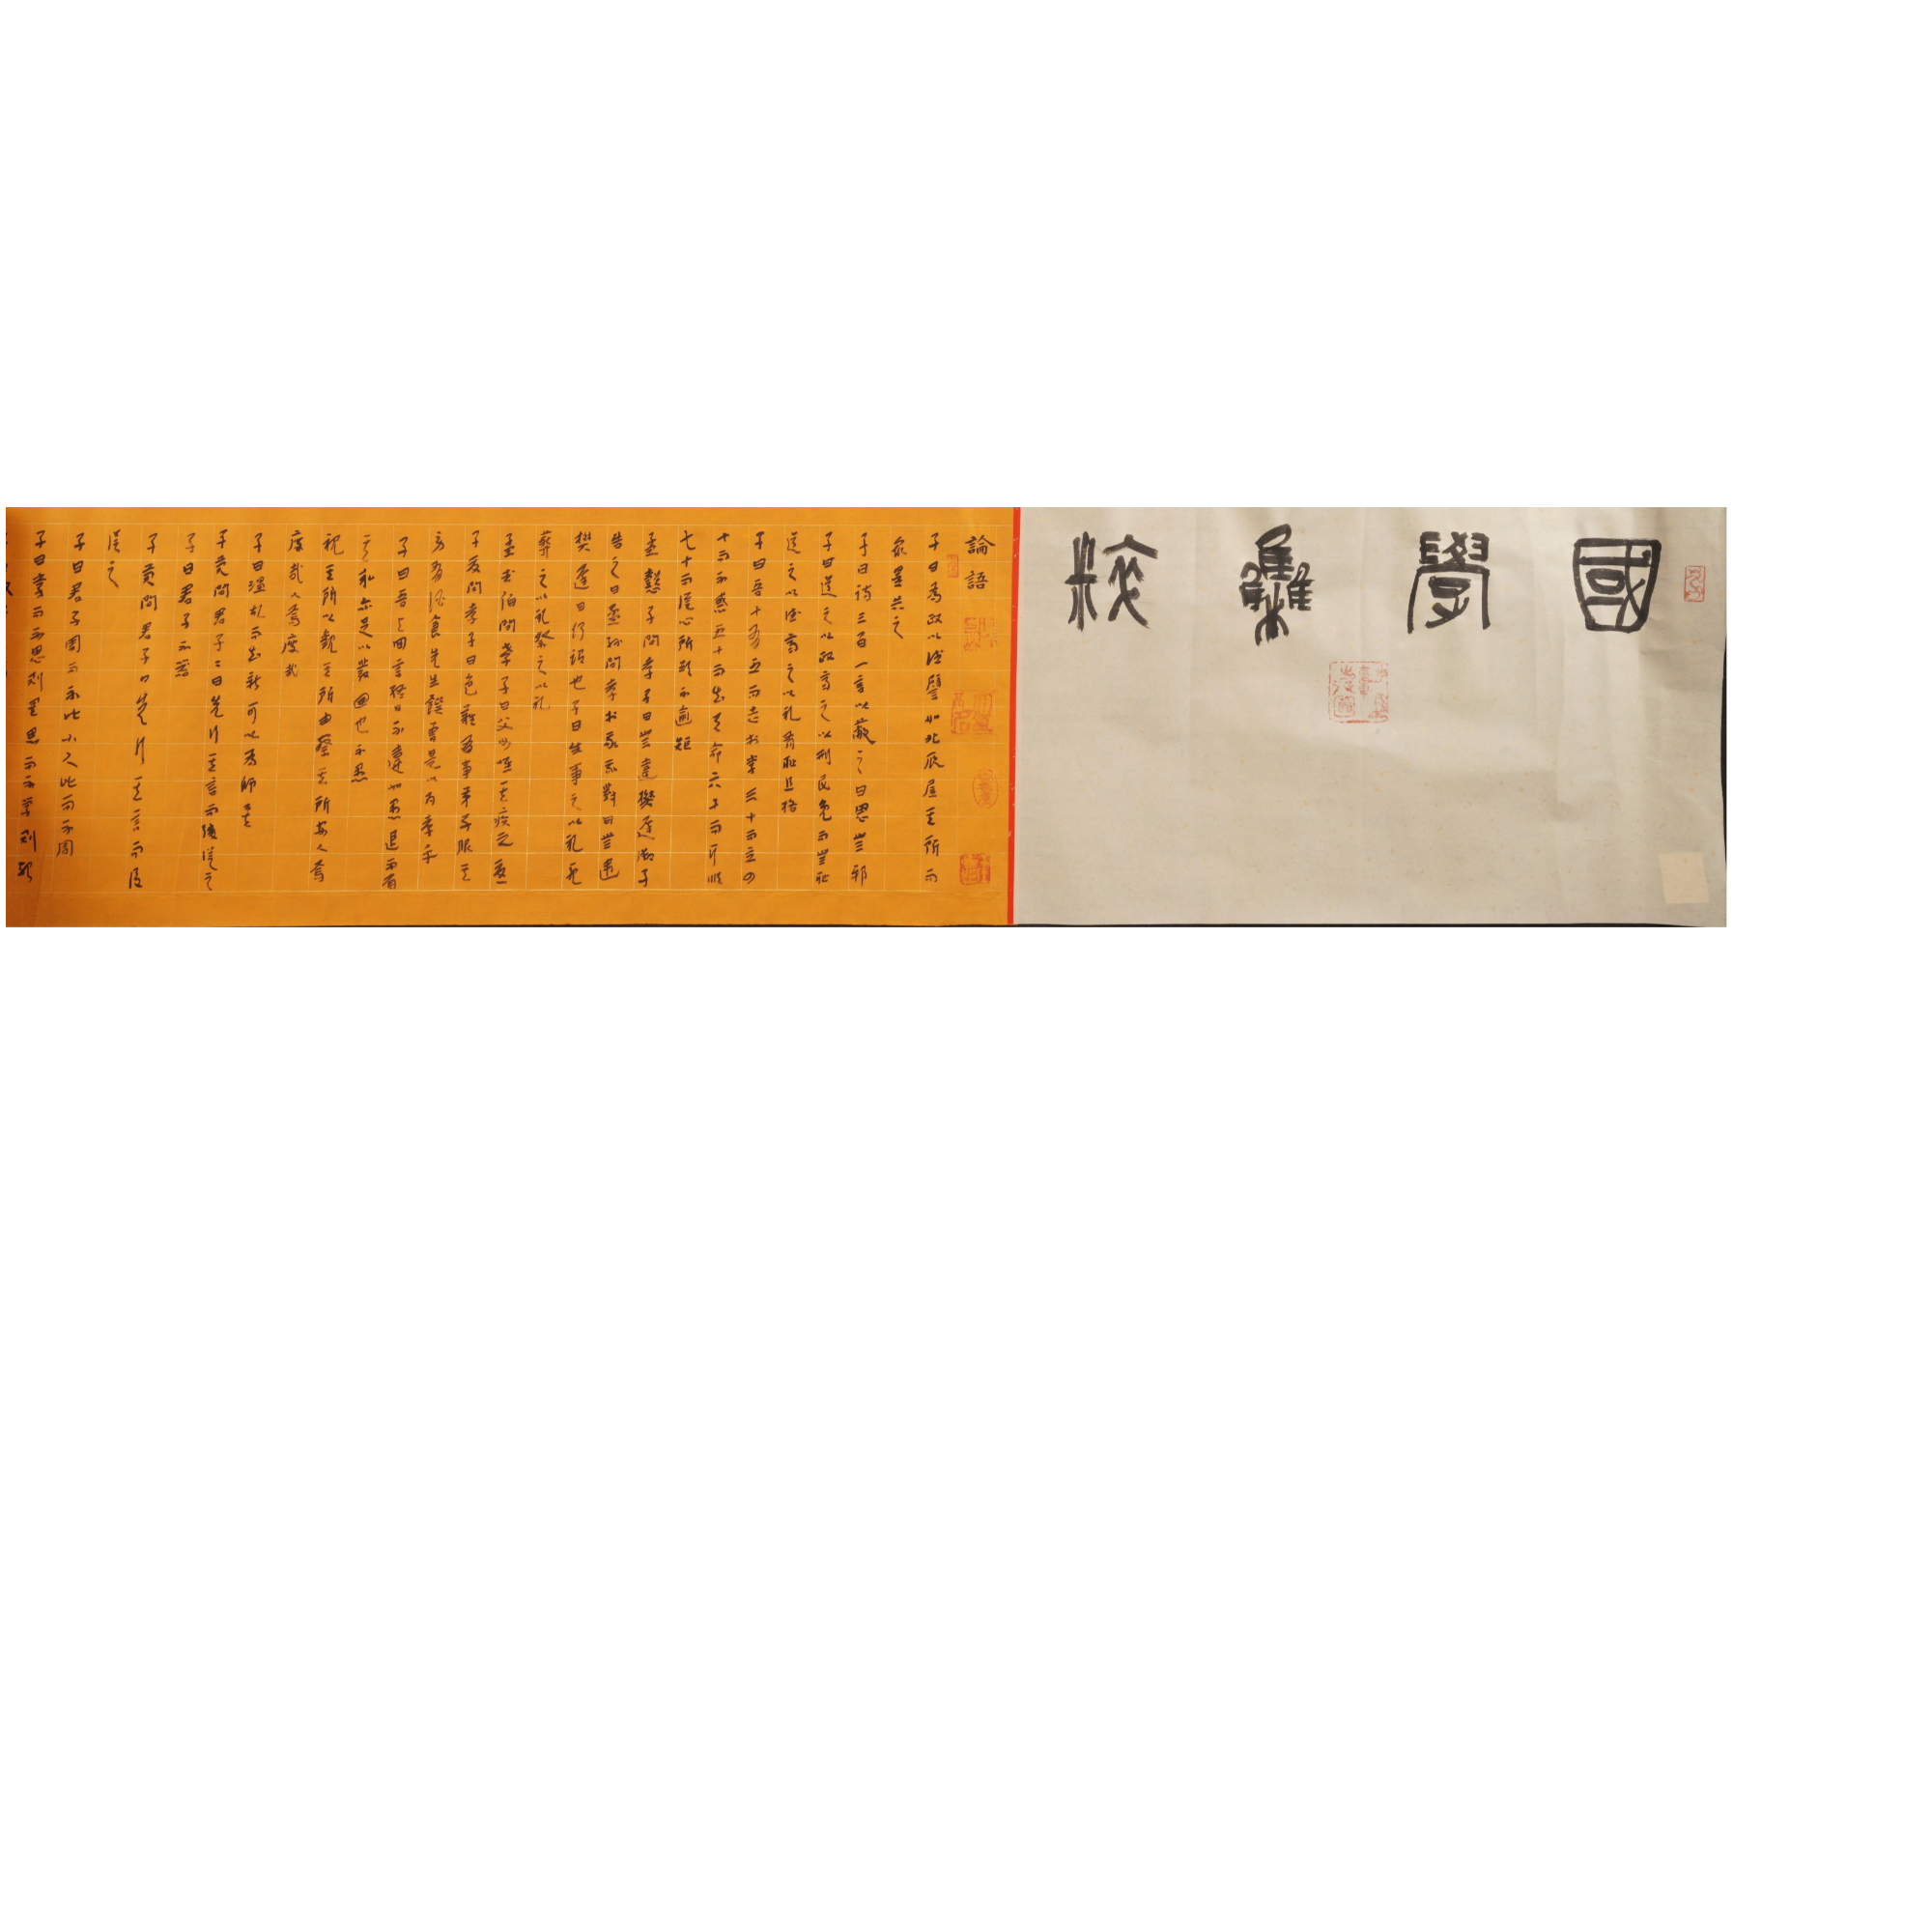 國學雧粹
論語
子曰為政以德譬如北辰居其所而
衆星共之
子曰詩三百一言以蔽之曰思無邪
子曰道之以政齊之以刑民免而無恥
道之以德齊之以礼有恥且格
子曰吾十有五而志於學三十而立四
十而不惑五十而知天命六十而耳順
七十而從心所欲不逾矩
孟懿子問孝子曰無違樊遲御子
告之曰孟孫問孝於我我對曰無違
樊遲曰何謂也子曰生事之以礼死
葬之以礼祭之以礼
孟武伯問孝子曰父母唯其疾之憂
子夏問孝子曰色難有事弟子服其
勞有酒食先生饌曾是以為孝乎
子曰吾與回言終日不違如愚退而省
其私亦足以發回也不愚
視其所以觀其所由察其所安人焉
廋哉人焉廋哉
子曰溫故而知新可以為師矣
子貢問君子=曰先行其言而後從之
子曰君子不器
子貢問君子曰先行其言而後
從之
子曰君子周而不比小人比而不周
子曰學而不思則罔思而不學則殆